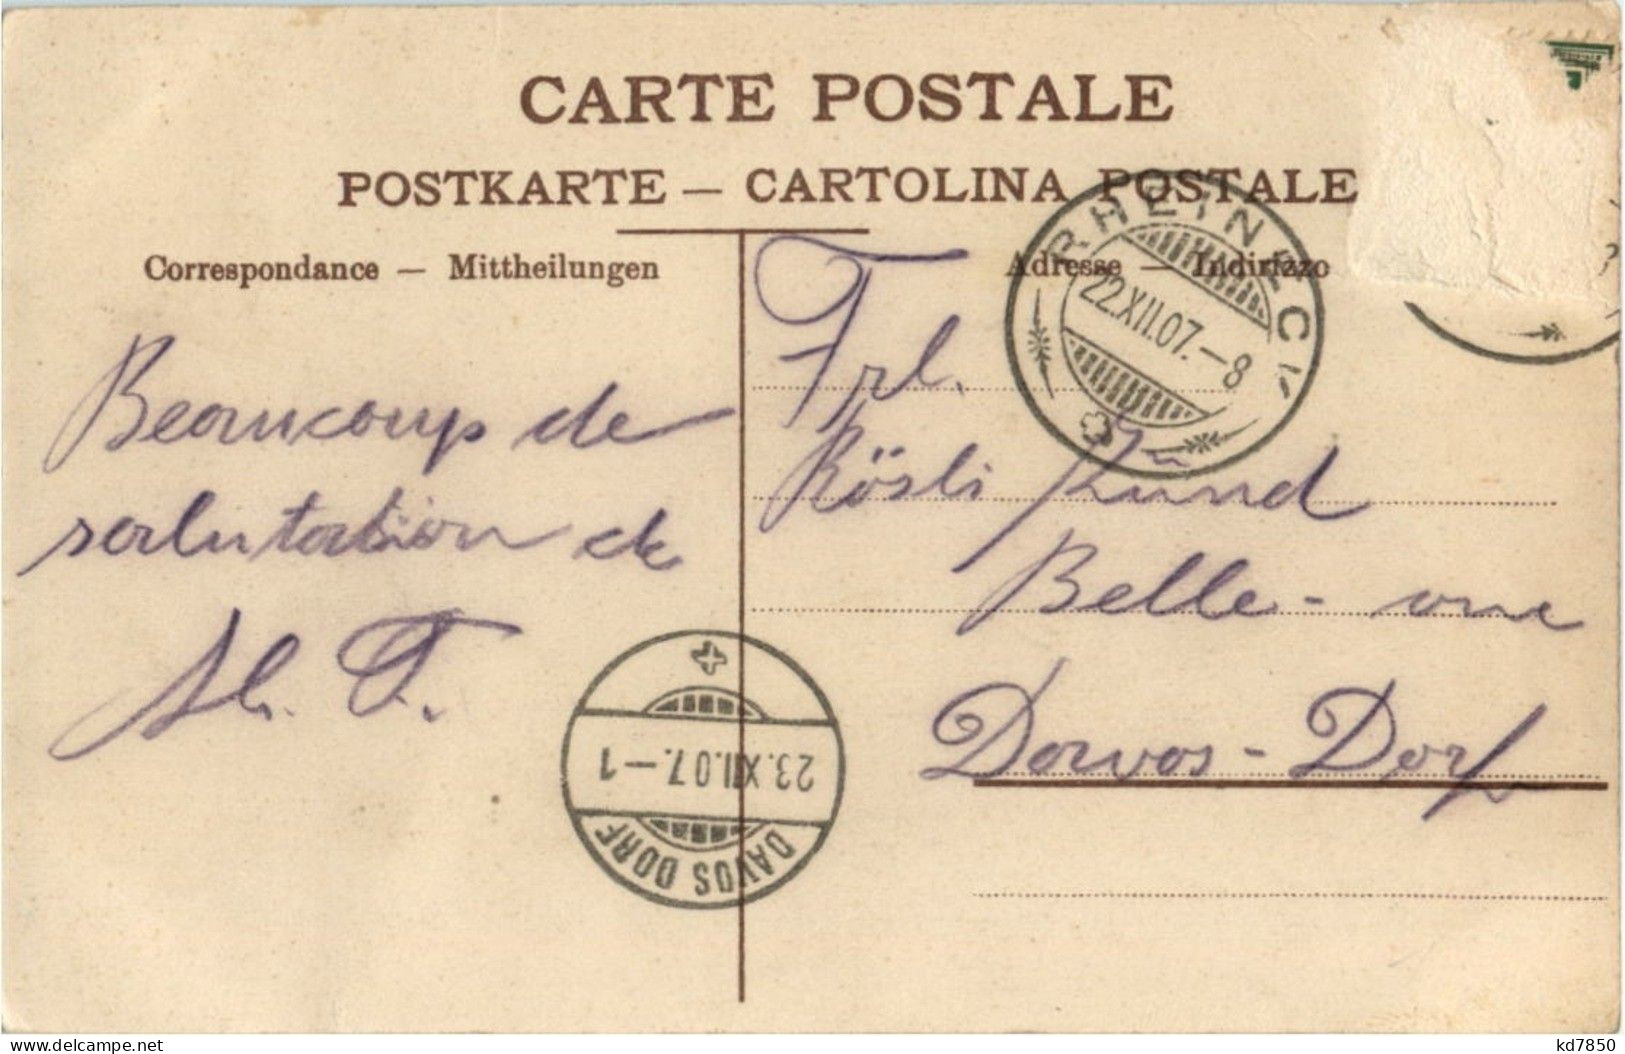 CARTE POSTALE
POSTKARTE — CARTOLINA POSTALE
Correspondance — Mittheilungen
Adresse — Indirizzo
RHEINECK
22.XII.07.–8
Beaucoup de
salutation de
Frl.
Rösli Zünd
Belle-vue
Davos-Dorf
23.XII.07.–1
DAVOS DORF
delcampe.net
kd7850